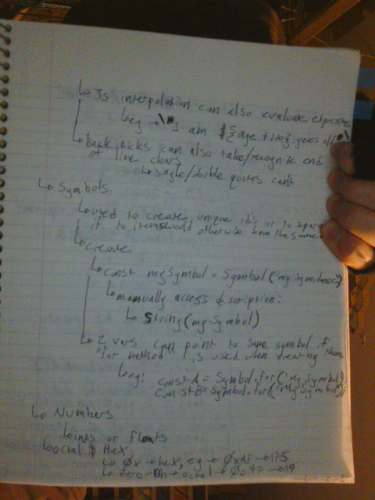 ↳ Js interpolation can also evaluate
↳ eg → I am ${age + } years old
↳ back ticks can also take/recognize end of line chars
↳ single/double quotes can't
↳ Symbols
↳ used to create unique id's or to
it to items would otherwise have the same
↳ create
↳ const mySymbol = Symbol('my
↳ manually access description:
↳ String(mySymbol)
↳ 2 vars can point to same symbol if
"for method" is used when creating
↳ eg: const A = Symbol.for('My Symbol')
const B = Symbol.for('My Symbol')
↳ Numbers
↳ ints or Floats
↳ octal & hex
↳ 0x → hex, eg → 0xAF → 175
↳ octal →